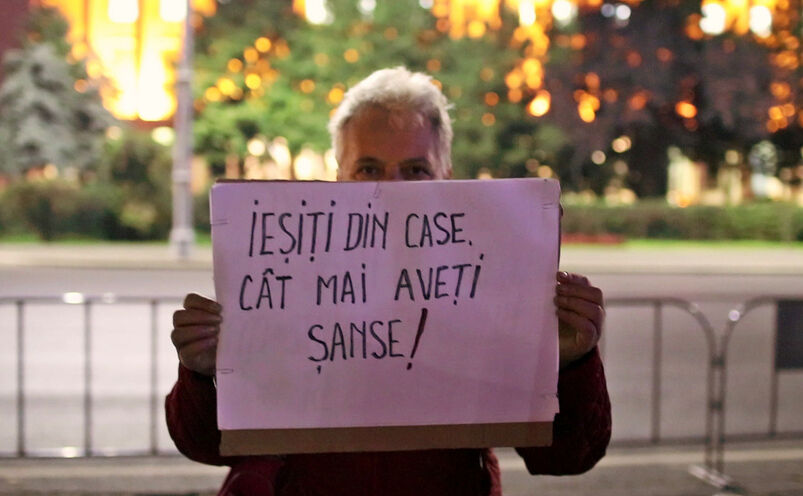 IEȘIȚI DIN CASE.
CÂT MAI AVEȚI
ȘANSE!